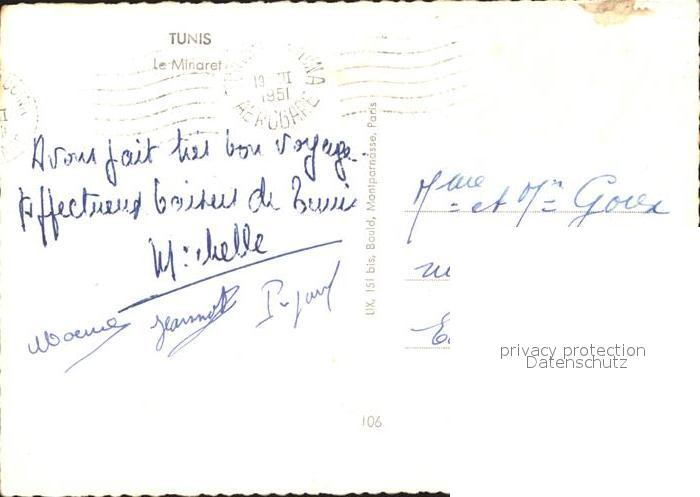 TUNIS
Le Minaret
19 VI
1951
AEROGARE
Avons fait très bon voyage.
Affectueux baisers de Tunis
Michelle
Jeannot
UX, 151 bis, Bould, Montparnasse, Paris
106
Mme et Mr
privacy protection
Datenschutz